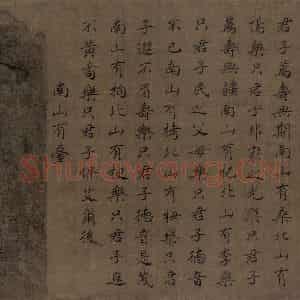 君子萬壽無期南山有桑北山有
楊樂只君子邦家之光樂只君子
萬壽無疆南山有杞北山有李樂
只君子民之父母樂只君子德音
不已南山有栲北山有杻樂只君
子遐不眉壽樂只君子德音是茂
南山有枸北山有楰樂只君子遐
不黃耇樂只君子保艾爾後
南山有臺
Shufawang.CN